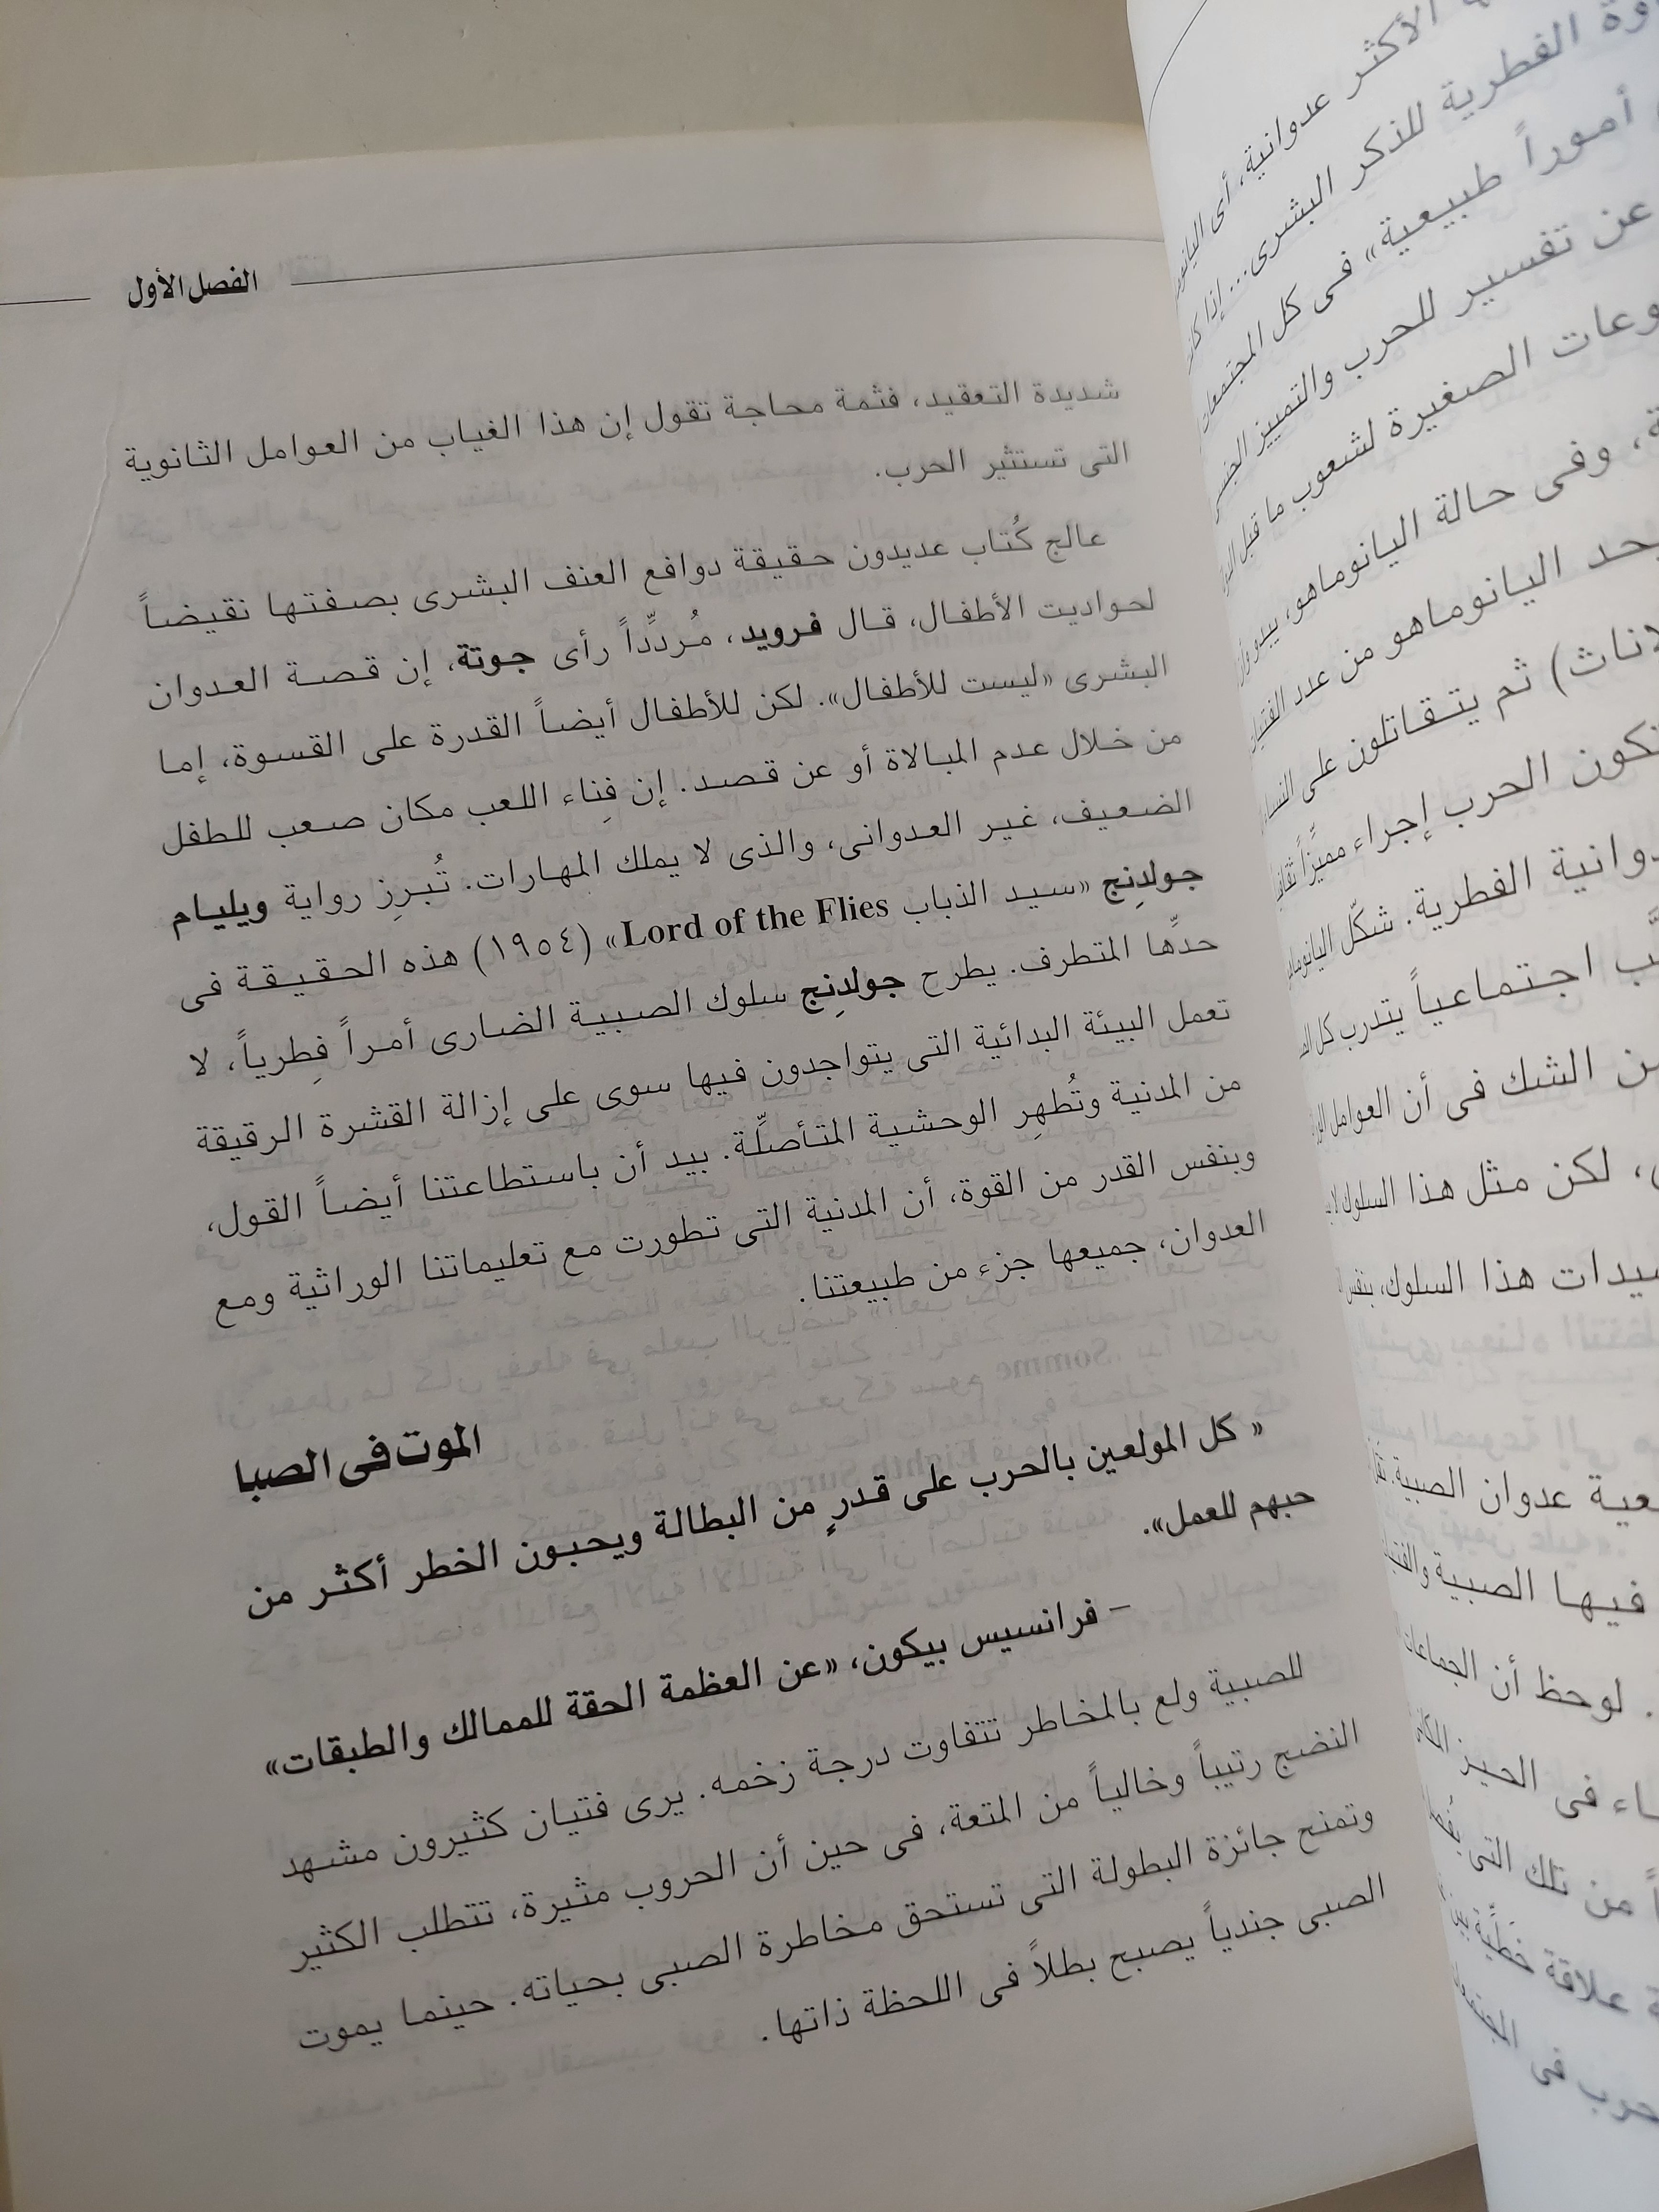 الفصل الأول
شديدة التعقيد، فثمة محاجة تقول إن هذا الغياب من العوامل الثانوية
التى تستثير الحرب.
عالج كُتاب عديدون حقيقة دوافع العنف البشرى بصفتها نقيضاً
لحواديت الأطفال، قال فرويد، مُردِّداً رأى جوتة، إن قصة العدوان
البشرى «ليست للأطفال». لكن للأطفال أيضاً القدرة على القسوة، إما
من خلال عدم المبالاة أو عن قصد. إن فِناء اللعب مكان صعب للطفل
الضعيف، غير العدوانى، والذى لا يملك المهارات. تُبرِز رواية ويليام
جولدِنِج «سيد الذباب Lord of the Flies» (١٩٥٤) هذه الحقيقة فى
حدِّها المتطرف. يطرح جولدِنِج سلوك الصبية الضارى أمراً فِطرياً، لا
تعمل البيئة البدائية التى يتواجدون فيها سوى على إزالة القشرة الرقيقة
من المدنية وتُطهِر الوحشية المتأصلِّة. بيد أن باستطاعتنا أيضاً القول،
وبنفس القدر من القوة، أن المدنية التى تطورت مع تعليماتنا الوراثية ومع
العدوان، جميعها جزء من طبيعتنا.
الموت فى الصبا
« كل المولعين بالحرب على قدرٍ من البطالة ويحبون الخطر أكثر من
حبهم للعمل».
– فرانسيس بيكون، «عن العظمة الحقة للممالك والطبقات»
للصبية ولع بالمخاطر تتفاوت درجة زخمه. يرى فتيان كثيرون مشهد
النضج رتيباً وخالياً من المتعة، فى حين أن الحروب مثيرة، تتطلب الكثير
وتمنح جائزة البطولة التى تستحق مخاطرة الصبى بحياته. حينما يموت
الصبى جندياً يصبح بطلاً فى اللحظة ذاتها.
الأكثر عدوانية، أى
الفطرية للذكر البشرى... إذا
أموراً طبيعية» فى كل المجتمعات
عن تفسير للحرب والتمييز
الصغيرة لشعوب ما قبل
وفى حالة اليانوماهو، يبدو
اليانوماهو من عدد
ثم يتقاتلون على
الحرب إجراء مميزًا
الفطرية. شكّل
اجتماعياً يتدرب كل
الشك فى أن العوامل
، لكن مثل هذا السلوك
هذا السلوك، بنفس
عدوان الصبية.
فيها الصبية
. لوحظ أن الجماعات
فى الحيز
من تلك التى
علاقة خطيَّة
فى